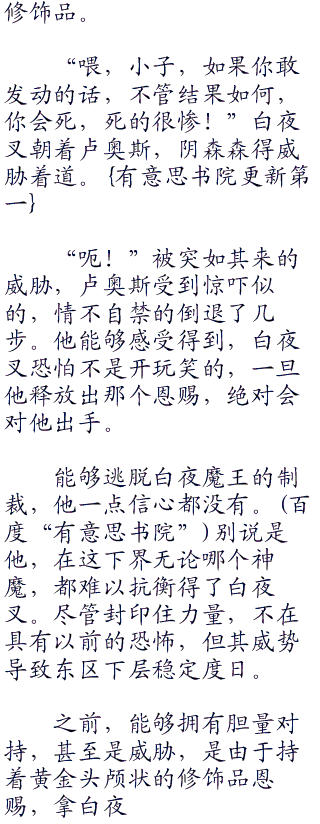 修饰品。
“喂，小子，如果你敢
发动的话，不管结果如何，
你会死，死的很惨！”白夜
叉朝着卢奥斯，阴森森得威
胁着道。{有意思书院更新第
一}
“呃！”被突如其来的
威胁，卢奥斯受到惊吓似
的，情不自禁的倒退了几
步。他能够感受得到，白夜
叉恐怕不是开玩笑的，一旦
他释放出那个恩赐，绝对会
对他出手。
能够逃脱白夜魔王的制
裁，他一点信心都没有。(百
度“有意思书院”)别说是
他，在这下界无论哪个神
魔，都难以抗衡得了白夜
叉。尽管封印住力量，不在
具有以前的恐怖，但其威势
导致东区下层稳定度日。
之前，能够拥有胆量对
持，甚至是威胁，是由于持
着黄金头颅状的修饰品恩
赐，拿白夜